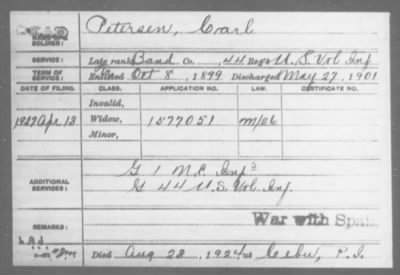 DEAD
NAME OF SOLDIER: Petersen, Carl
SERVICE: Late rank Band Co., 44 Reg't U.S. Vol Inf
TERM OF SERVICE: Enlisted Oct 8, 1899 Discharged May 27, 1901
DATE OF FILING. CLASS. APPLICATION NO. LAW. CERTIFICATE NO.
Invalid,
1927 Apr 13 Widow, 1577051
Minor,
G 1 Inf
ADDITIONAL SERVICES: G 44 U.S. Vol Inf.
War with Spain
REMARKS:
Died Aug 23, 1924 at Cebu, P.I.